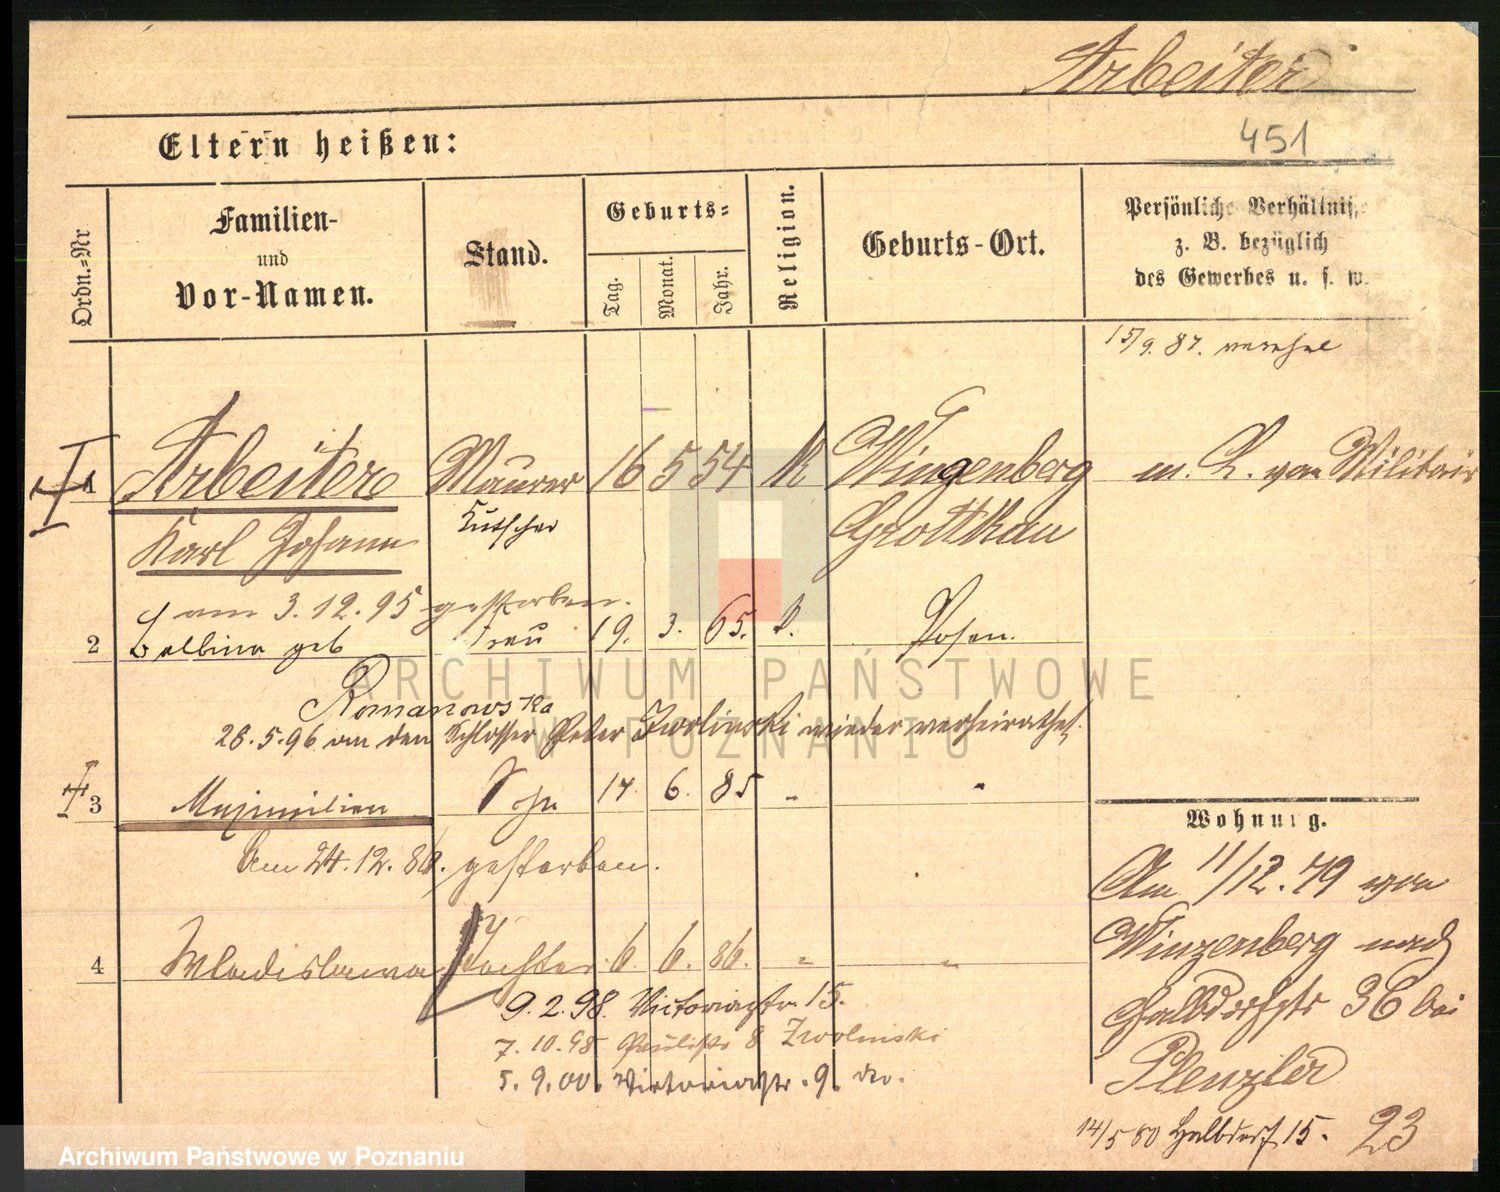 Arbeiter
451
Eltern heißen:
Ordn.-Nr
Familien-
und
Vor-Namen.
Stand.
Geburts-
Tag.
Monat.
Jahr.
Religion.
Geburts-Ort.
Persönliche Verhältnisse
z. B. bezüglich
des Gewerbes u. s. w.
15/9. 87.
1 Arbeiter Maurer 16 5 54 K Winzenberg m. L. von Militair
Karl Johann Kutscher Grottkau
am 3.12.95 gestorben.
2 Balbina geb Frau 19. 3. 65. k. Posen.
Romanowska
26.5.96 an den Schlosser Peter Zwolinski wieder verheirathet.
3 Maximilian Sohn 17. 6. 85 " "
Am 24.12.86. gestorben.
4 Wladislawa Tochter 6. 6. 86. " "
9.2.98. Victoriastr. 15.
7.10.98 Paulistr 8 Zwolinski
5.9.00. Victoriastr. 9. do.
Wohnung.
Am 11/12.79 von
Winzenberg nach
Halbdorfstr 36 bei
Plenzler
14/5 80 Halbdorf 15. 23
ARCHIWUM PAŃSTWOWE
W POZNANIU
Archiwum Państwowe w Poznaniu